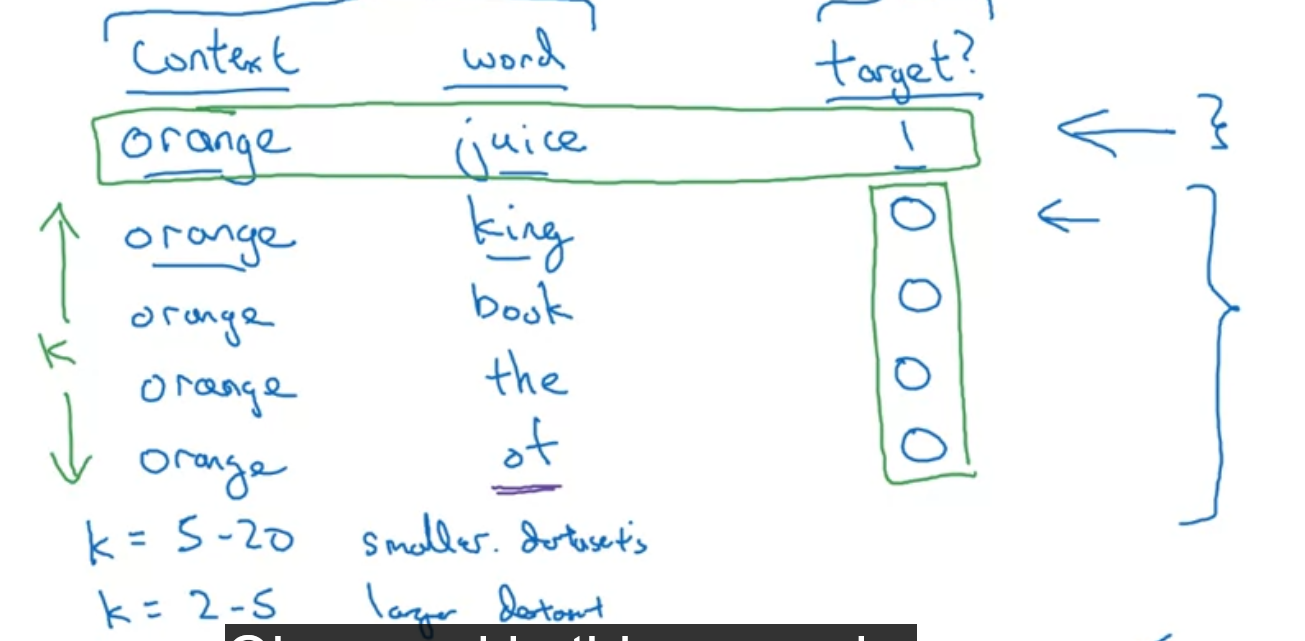 Context word target?
orange juice 1
orange king 0
orange book 0
k
orange the 0
orange of 0
k = 5-20 smaller. datasets
k = 2-5 larger dataset